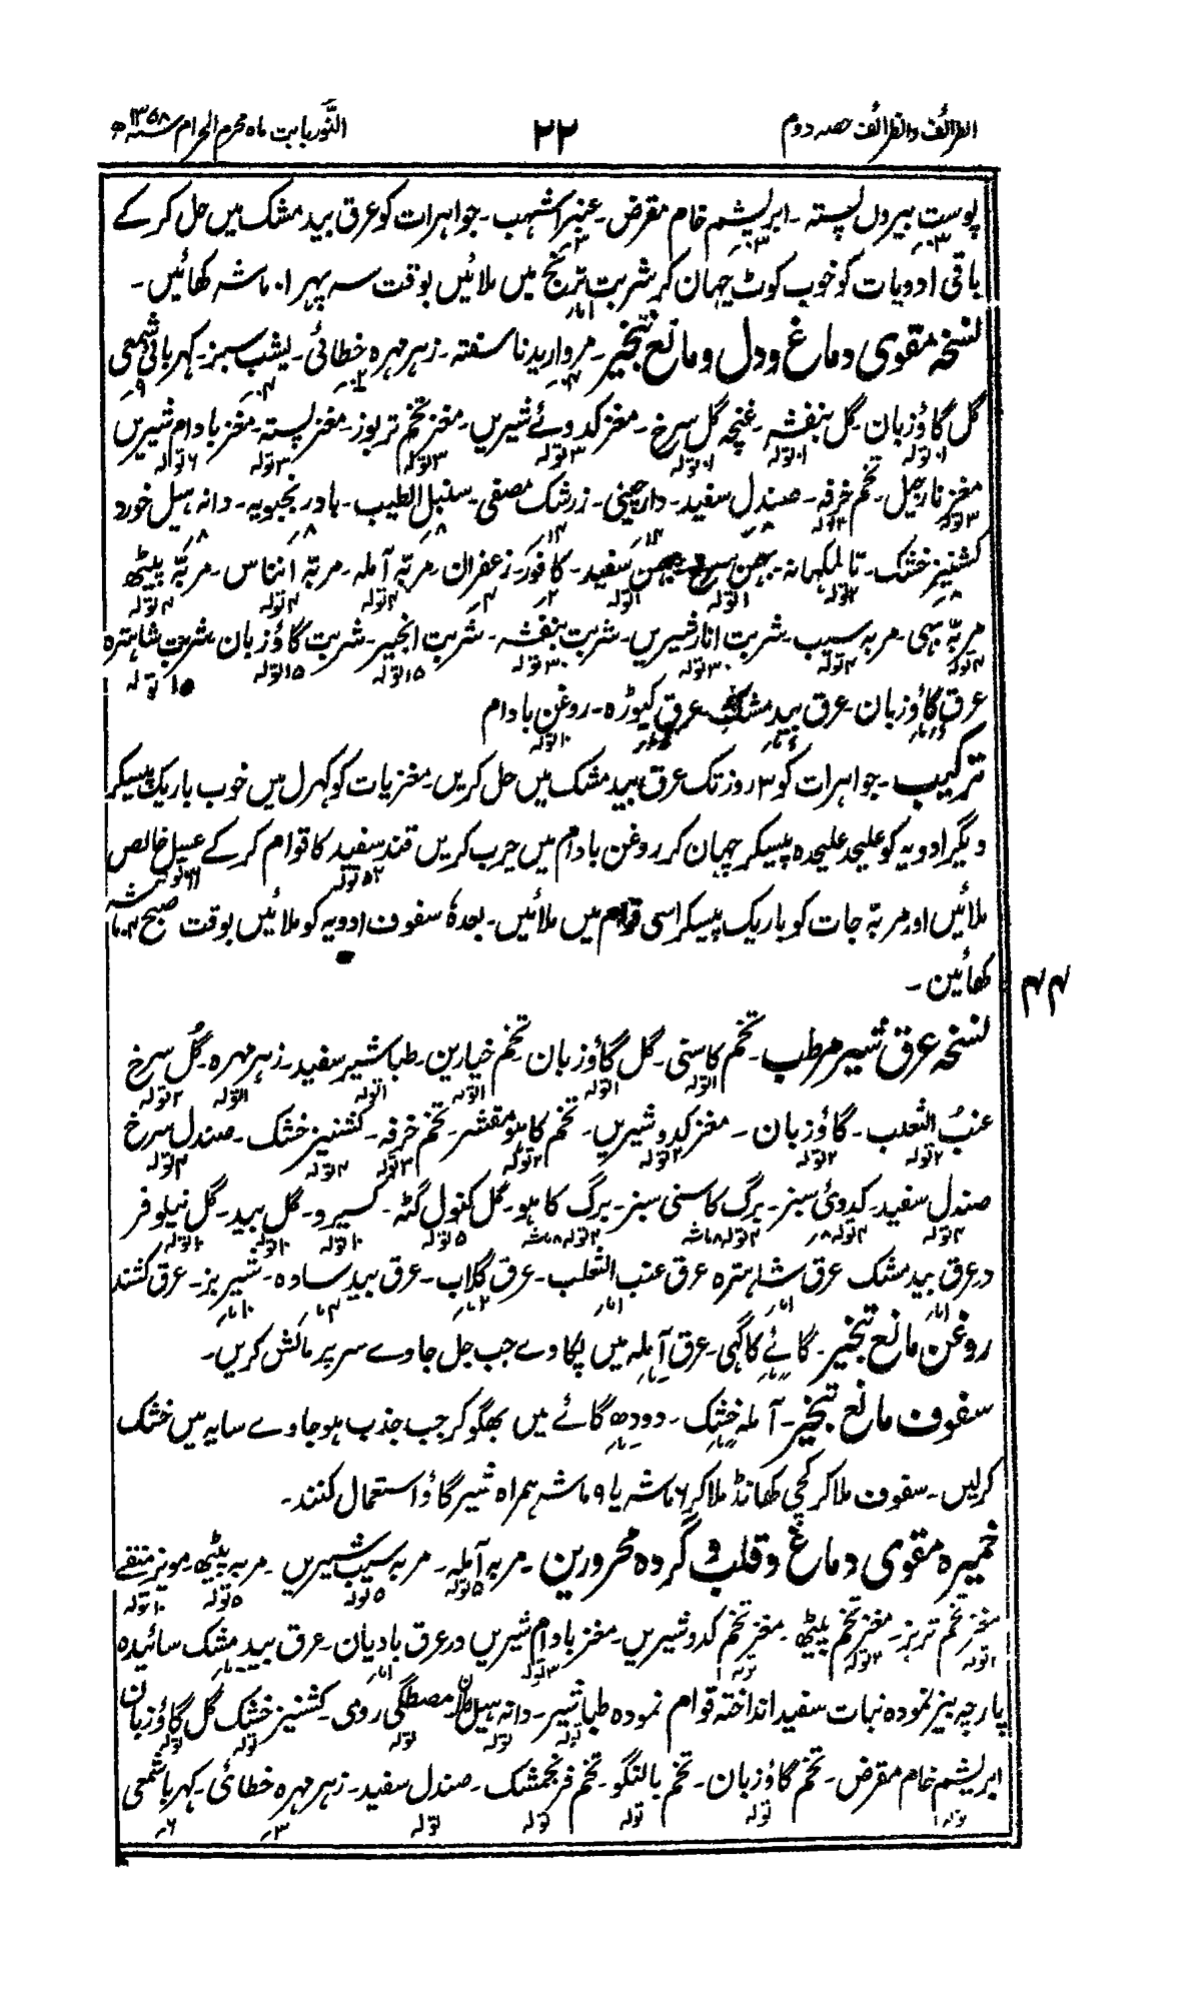 الطرائف والظرائف حصہ دوم
۲۲
النور بابت ماہ محرم الحرام سنہ ۱۳۵۸ھ
پوست بیروں پستہ۔ ابریشم خام مقرض۔ عنبر اشہب۔ جواہرات کو عرق بید مشک میں حل کر کے
باقی ادویات کو خوب کوٹ چہان کر شربت ترنج میں ملائیں بوقت سہ پہر ۱۰ ماشہ کھائیں۔
نسخہ مقوی دماغ و دل و مانع تبخیر۔ مروارید ناسفتہ۔ زہر مہرہ خطائی۔ یشب سبز۔ کہربائی شمعی
گل گاؤزبان۔ گل بنفشہ۔ غنچہ گل سرخ۔ مغز کدوئے شیریں۔ مغز تخم تربوز۔ مغز پستہ۔ مغز بادام شیریں
۳ تولہ ۳ تولہ ۳ تولہ ۶ تولہ
مغز نارجیل۔ تخم خرفہ۔ صندل سفید۔ دارچینی۔ زرشک مصفی۔ سنبل الطیب۔ بادرنجبویہ۔ دانہ ہیل خورد
کشنیز خشک۔ تالمکہانہ۔ بہمن سرخ۔ بہمن سفید۔ کافور۔ زعفران۔ مربہ آملہ۔ مربہ انناس۔ مربہ پیٹھ
مربہ بہی۔ مربہ سیب۔ شربت انار شیریں۔ شربت بنفشہ۔ شربت انجیر۔ شربت گاؤزبان۔ شربت شاہترہ
۴ تولہ ۴ تولہ ۳۰ تولہ ۳۰ تولہ ۱۵ تولہ ۱۵ تولہ ۱۵ تولہ
عرق گاؤزبان۔ عرق بید مشک۔ عرق کیوڑہ۔ روغن بادام
ترکیب۔ جواہرات کو ۳ روز تک عرق بید مشک میں حل کریں۔ مغزیات کو کہرل میں خوب باریک پیسکر
دیگر ادویہ کو علیحدہ علیحدہ پیسکر چہان کر روغن بادام میں چرب کریں قند سفید کا قوام کر کے عسل خالص
ملائیں اور مربہ جات کو باریک پیسکر اسی قوام میں ملائیں۔ بعدہٗ سفوف ادویہ کو ملائیں بوقت صبح ماشہ
کھائین۔
۴۴
نسخہ عرق شیر مرطب۔ تخم کاسنی۔ گل گاؤزبان۔ تخم خیارین۔ طباشیر سفید۔ زہر مہرہ۔ گل سرخ
عنب الثعلب۔ گاؤزبان۔ مغز کدو شیریں۔ تخم کاہو مقشر۔ تخم خرفہ۔ کشنیز خشک۔ صندل سرخ
۲ تولہ ۲ تولہ ۲ تولہ ۲ تولہ ۳ تولہ ۴ تولہ ۴ تولہ
صندل سفید۔ کدوئ سبز۔ برگ کاسنی سبز۔ برگ کاہو۔ گل کنول گٹہ۔ کسیرو۔ گل بید۔ گل نیلوفر
درعرق بید مشک عرق شاہترہ عرق عنب الثعلب۔ عرق گلاب۔ عرق بید سادہ۔ شیر بز۔ عرق کشند
روغن مانع تبخیر۔ گائے کا گہی۔ عرق آملہ میں پکاوے جب جل جاوے سر پر مالش کریں۔
سفوف مانع تبخیر۔ آملہ خشک۔ دودھ گائے میں بھگو کر جب جذب ہو جاوے سایہ میں خشک
کرلیں۔ سفوف ملا کر کچی کھانڈ ملا کر ۶ ماشہ یا ۹ ماشہ ہمراہ شیر گاؤ استعمال کنند۔
خمیرہ مقوی دماغ و قلب و گردہ محرورین۔ مربہ آملہ۔ مربہ سیب شیریں۔ مربہ پیٹھ۔ مویز منقے
۵ تولہ ۵ تولہ ۵ تولہ ۱۰ تولہ
مغز تخم تربز۔ مغز تخم پیٹھ۔ مغز تخم کدو شیریں۔ مغز بادام شیریں درعرق بادیان۔ عرق بید مشک سائیدہ
پارچہ بیز نمودہ نبات سفید انداختہ قوام نمودہ طباشیر۔ دانہ ہیل کلان۔ مصطگی رومی۔ کشنیز خشک گل گاؤزبان
ابریشم خام مقرض۔ تخم گاؤزبان۔ تخم بالنگو۔ تخم فرنجمشک۔ صندل سفید۔ زہر مہرہ خطائی۔ کہربا شمعی
تولہ تولہ تولہ تولہ تولہ ۳ ۶